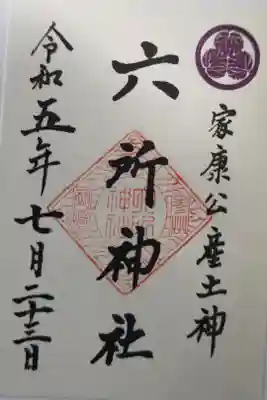 家康公産土神
六所神社
令和五年七月二十三日